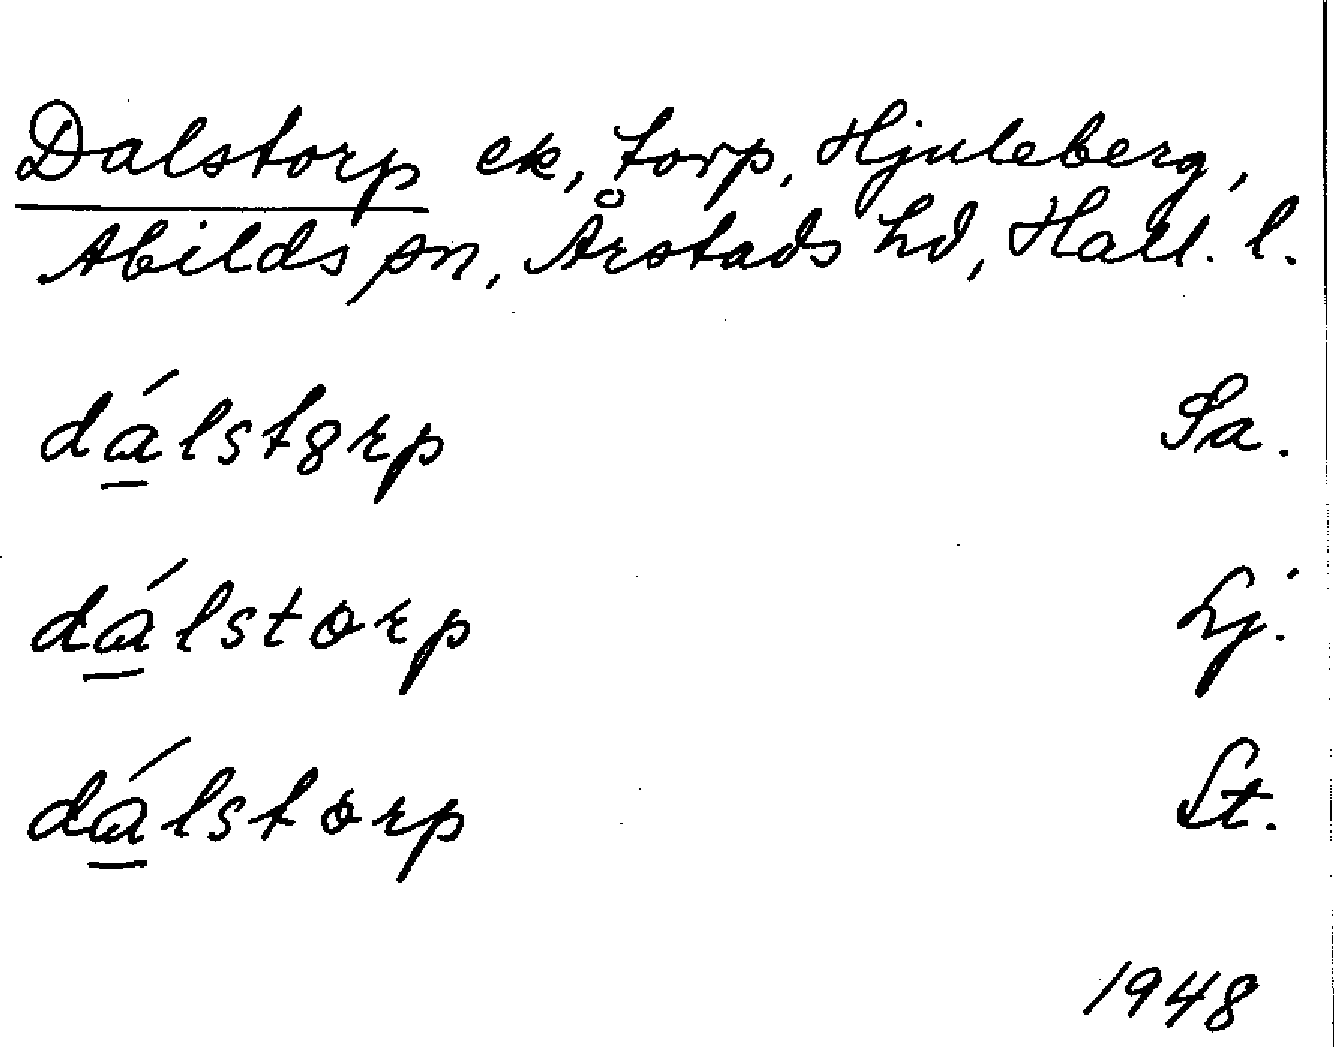 Dalstorp ek, torp, Hjuleberg,
Abilds sn, Årstads hd, Hall. l.
dá̱lstȣrp Sa.
dá̱lstorp Lj.
dá̱lstorp St.
1948